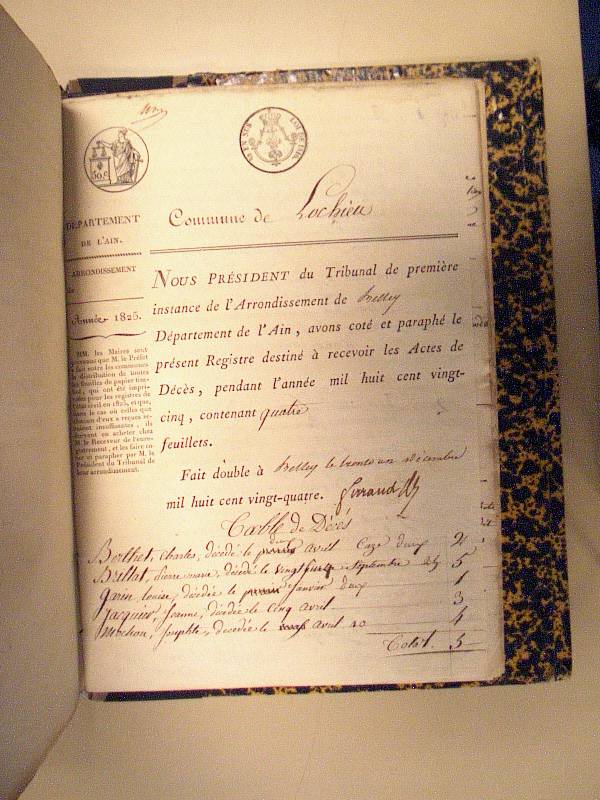 50.c
Commune de Lochieu
DÉPARTEMENT
DE L'AIN.
ARRONDISSEMENT
de
Année 1825.
MM. les Maires sont
prévenus que M. le Préfet
a fait entre les communes
la distribution de toutes
les feuilles de papier tim-
bré, qui ont été impri-
mées pour les registres de
l'état civil en 1825, et que,
dans le cas où celles que
chacun d'eux a reçues se-
raient insuffisantes, ils
devront en acheter chez
M. le Receveur de l'enre-
gistrement, et les faire co-
ter et parapher par M. le
Président du Tribunal de
leur arrondissement.
NOUS PRÉSIDENT du Tribunal de première
instance de l'Arrondissement de Belley
Département de l'Ain, avons coté et paraphé le
présent Registre destiné à recevoir les Actes de
Décès, pendant l'année mil huit cent vingt-
cinq, contenant quatre
feuillets.
Fait double à Belley le trente un décembre
mil huit cent vingt-quatre.
Table de Décès
Berthet, Charles, décédé le dix avril 2
Brillat, pierre marie, décédé le vingt septembre 5
Garin louise, décédée le janvier 1
Jacquier, Jeanne, décédée le cinq avril 3
Mochon, Josephte, décédée le avril 4
Total. 5